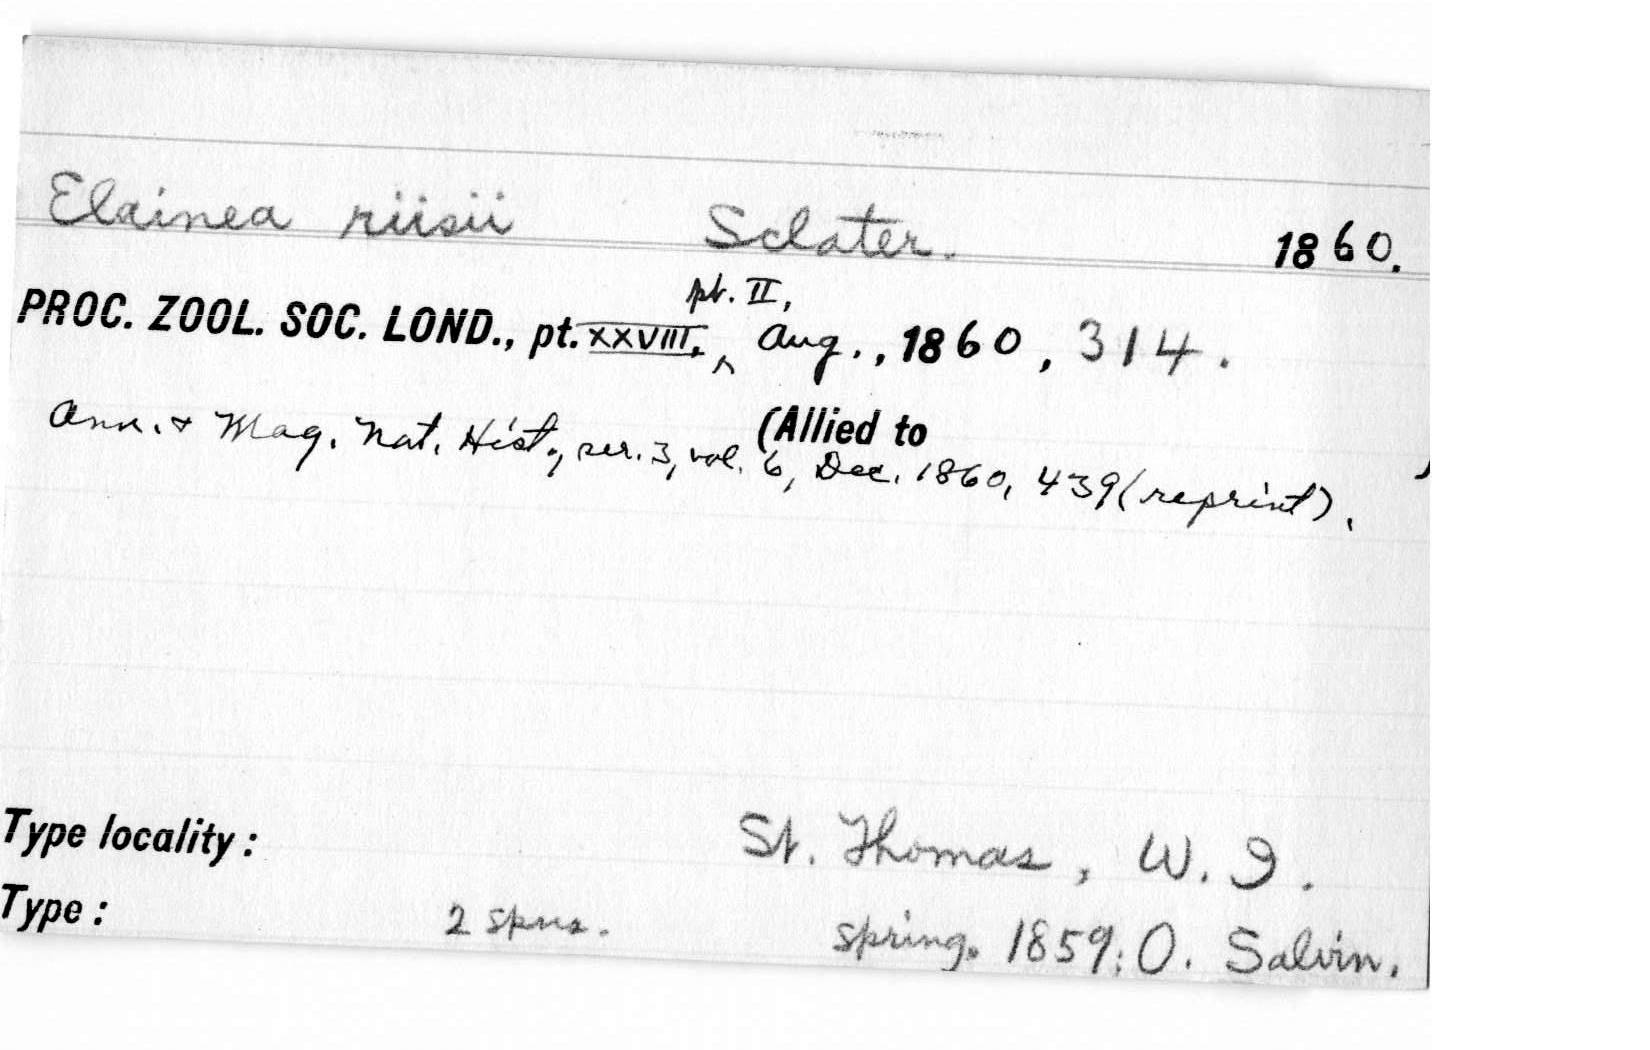 Elainea riisii Sclater. 1860.
pt. II,
PROC. ZOOL. SOC. LOND., pt. XXVIII, ^ Aug., 1860, 314.
(Allied to )
Ann. & Mag. Nat. Hist., ser. 3, vol. 6, Dec. 1860, 439 (reprint).
Type locality: St. Thomas, W. I.
Type: 2 spns. spring. 1859: O. Salvin.